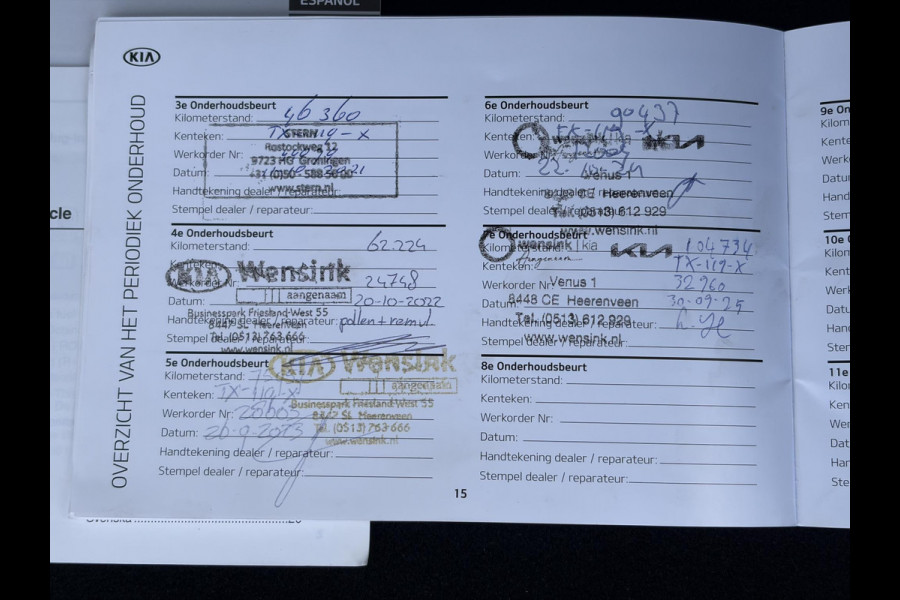 ESPAÑOL
KIA
OVERZICHT VAN HET PERIODIEK ONDERHOUD
3e Onderhoudsbeurt
Kilometerstand: 46 360
Kenteken: TX-119-X
Werkorder Nr:
Datum:
Handtekening dealer / reparateur:
Stempel dealer / reparateur:
STERN
Rostockweg 12
9723 HG Groningen
+31 (0)50 - 588 50 00
www.stern.nl
4e Onderhoudsbeurt
Kilometerstand: 62.224
Kenteken:
Werkorder Nr: 24748
Datum: 20-10-2022
Handtekening dealer / reparateur: pollen + remvl.
Stempel dealer / reparateur:
KIA Wensink
aangenaam
Businesspark Friesland-West 55
8447 SL Heerenveen
Tel. (0513) 763 666
www.wensink.nl
5e Onderhoudsbeurt
Kilometerstand:
Kenteken: TX-119-X
Werkorder Nr:
Datum: 20-9-2023
Handtekening dealer / reparateur:
Stempel dealer / reparateur:
KIA Wensink
aangenaam
Businesspark Friesland-West 55
8447 SL Heerenveen
Tel. (0513) 763 666
www.wensink.nl
6e Onderhoudsbeurt
Kilometerstand: 90437
Kenteken: TX-119-X
Werkorder Nr:
Datum:
Handtekening dealer / reparateur:
Stempel dealer / reparateur:
wensink | kia KIA
Venus 1
8448 CE Heerenveen
Tel. (0513) 612 929
www.wensink.nl
7e Onderhoudsbeurt
Kilometerstand: 104734
Kenteken: TX-119-X
Werkorder Nr: 32960
Datum: 30-09-25
Handtekening dealer / reparateur:
Stempel dealer / reparateur:
wensink | kia KIA
Aangenaam
Venus 1
8448 CE Heerenveen
Tel. (0513) 612 929
www.wensink.nl
8e Onderhoudsbeurt
Kilometerstand:
Kenteken:
Werkorder Nr:
Datum:
Handtekening dealer / reparateur:
Stempel dealer / reparateur:
15
9e On
Kilom
Kente
Werk
Datu
Hand
Stem
10e
Kilo
Kent
Werk
Datu
Hand
Ste
11e
Kilo
Ken
Wer
Dat
Har
Ste
cle
Svenska